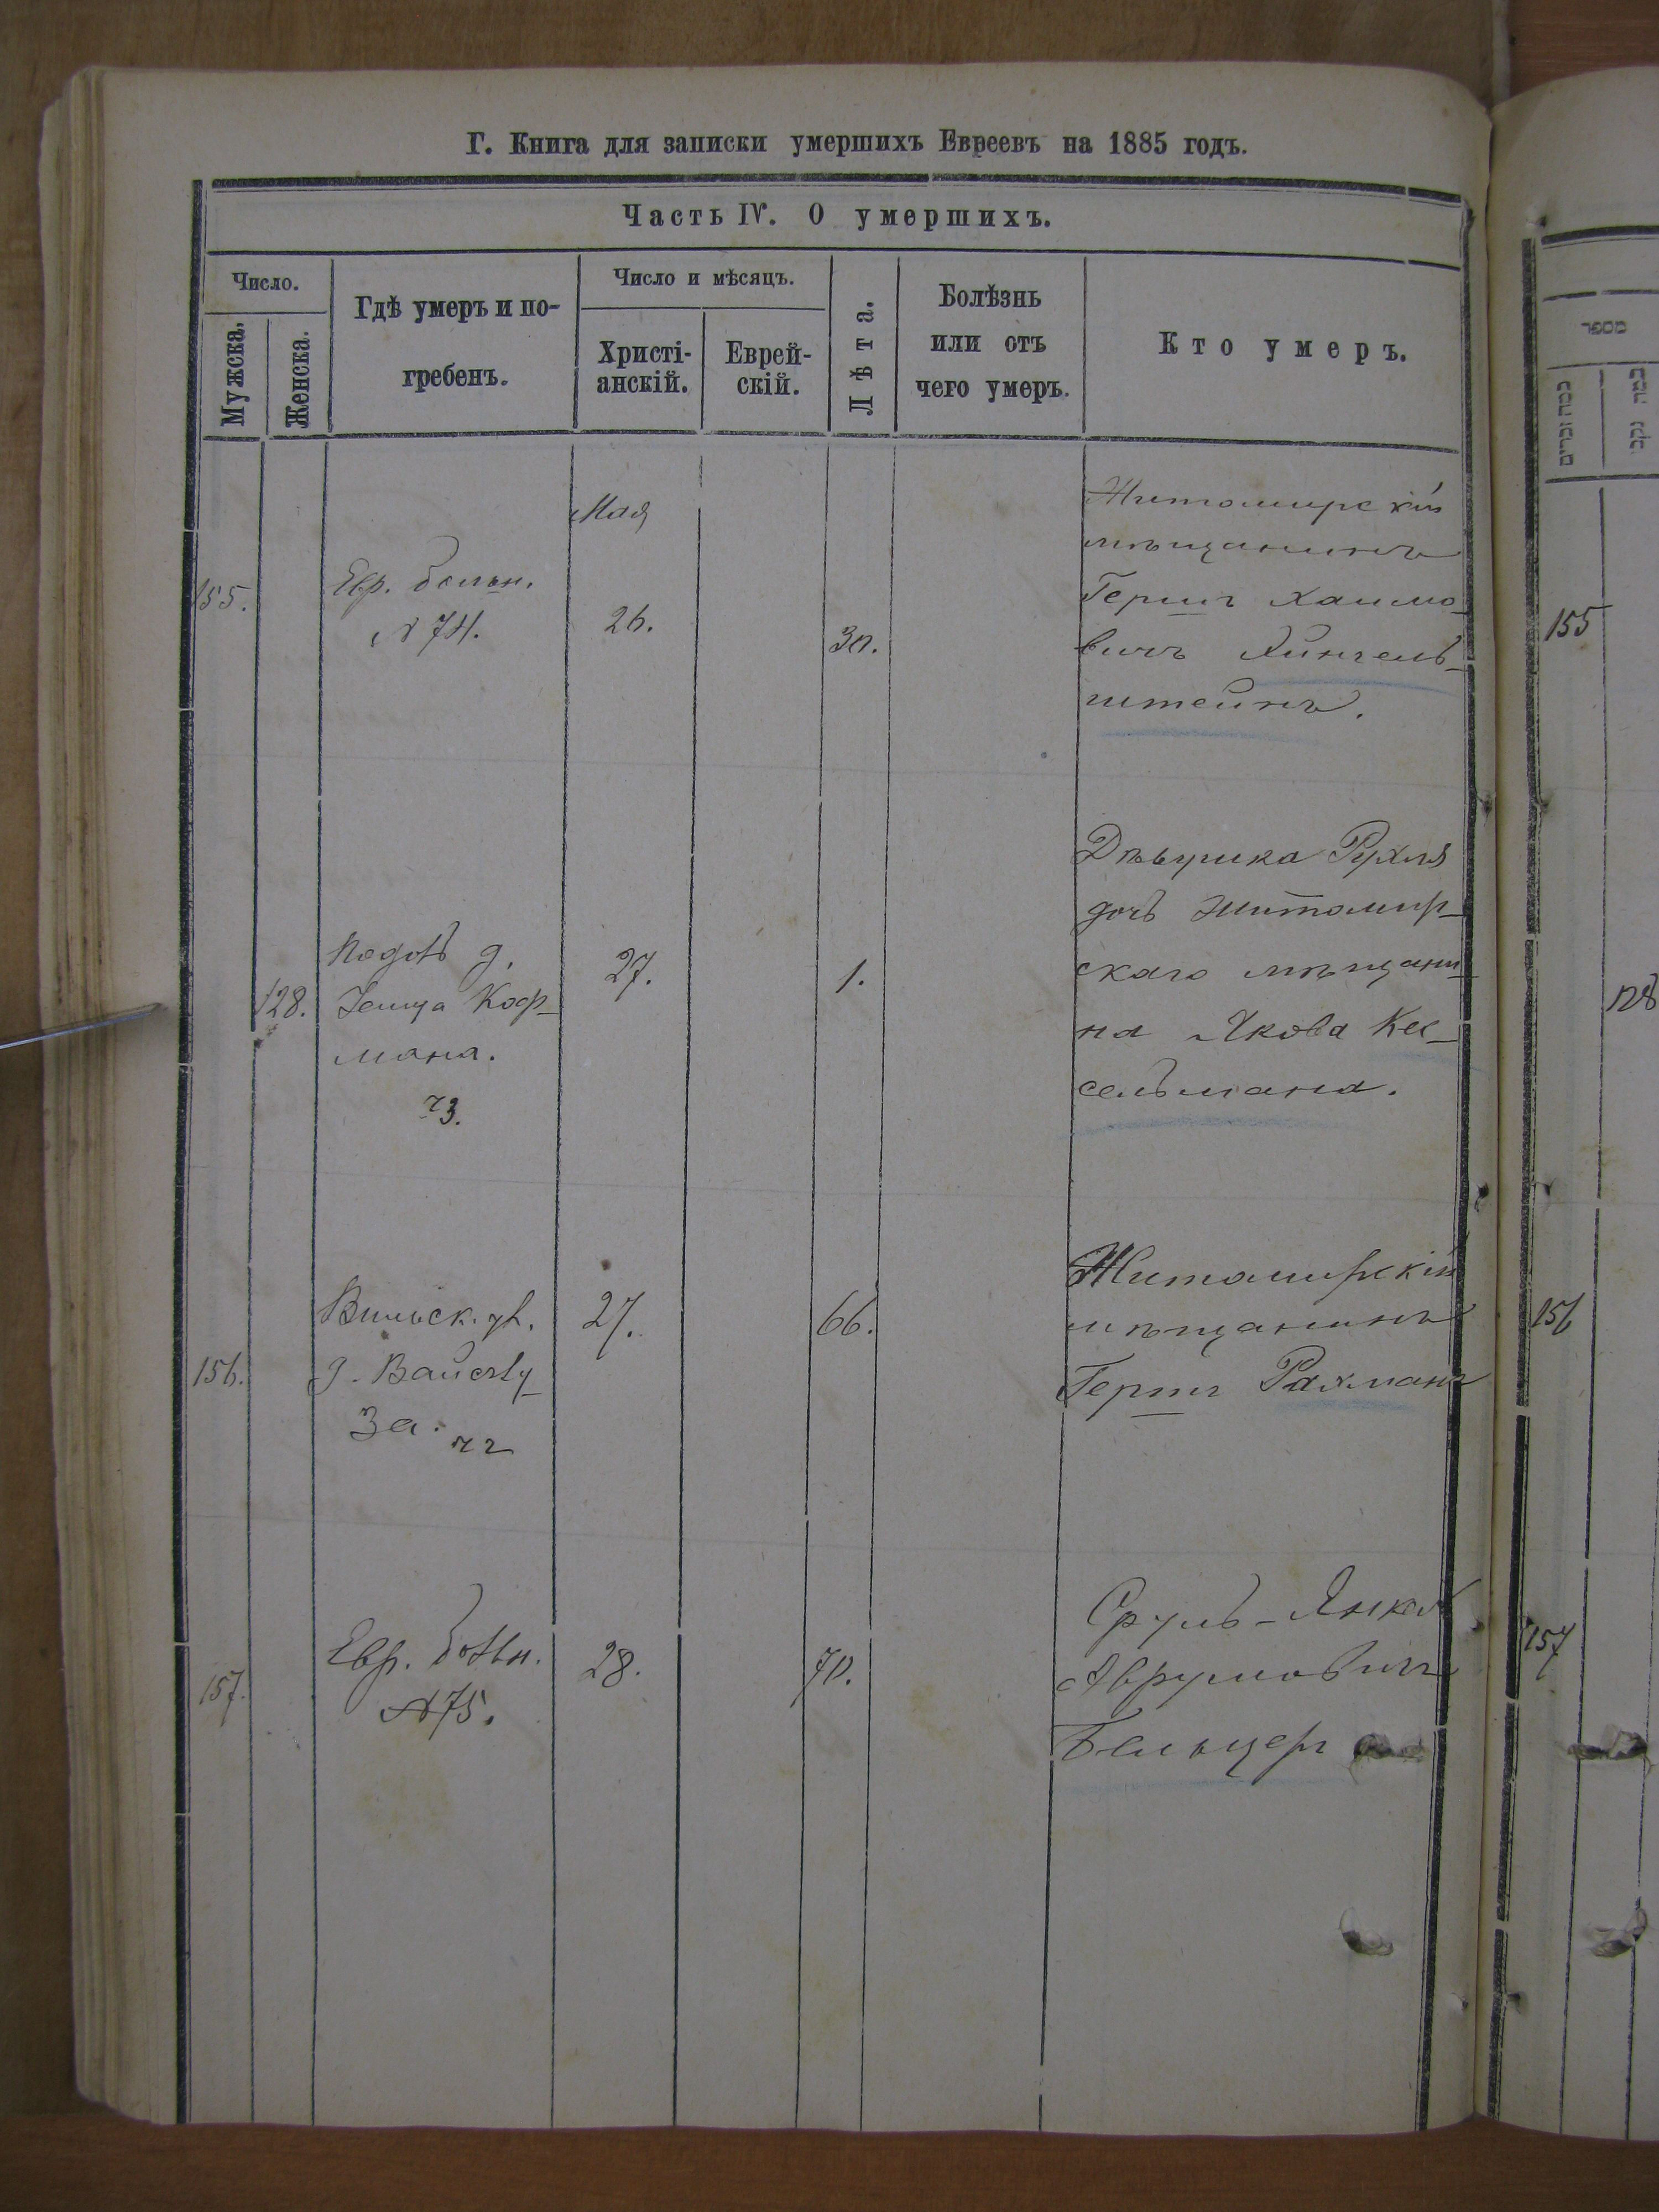 Г. Книга для записки умершихъ Евреевъ на 1885 годъ.
Часть IV. О умершихъ.
Число.
Мужска.
Женска.
Гдѣ умеръ и по-
гребенъ.
Число и мѣсяцъ.
Христі-
анскій.
Еврей-
скій.
Лѣта.
Болѣзнь
или отъ
чего умеръ.
Кто умеръ.
Мая
155.
Евр. больн.
№ 74.
26.
30.
Житомирскій
мѣщанинъ
Гершъ Хаимо-
вичъ
штейнъ.
155
128.
д.
Коф-
мана.
73.
27.
1.
Дѣвушка Рухля
дочь Житомир-
скаго мѣщани-
на Якова Кес-
сельмана.
128
156.
Вильск. ул.
д.
за. 72
27.
66.
Житомирскій
мѣщанинъ
Гершъ Рахманъ
156
157.
Евр. больн.
№ 75.
28.
70.
Сруль-Янкель
Аврумовичъ
Бельцеръ
157